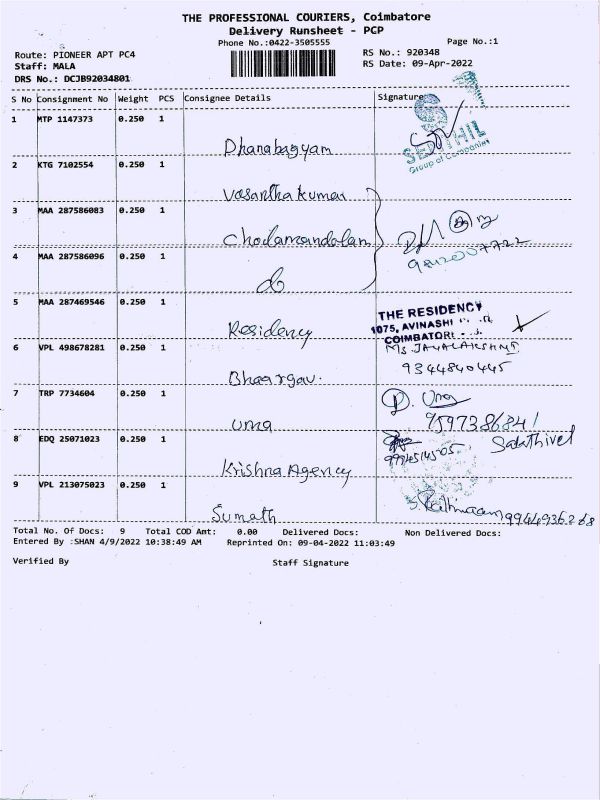 THE PROFESSIONAL COURIERS, Coimbatore
Delivery Runsheet - PCP
Phone No.:0422-3505555
Page No.:1
Route: PIONEER APT PC4
RS No.: 920348
Staff: MALA
RS Date: 09-Apr-2022
DRS No.: DCJB92034801
S No Consignment No Weight PCS Consignee Details Signature
1 MTP 1147373 0.250 1
Dhanabagyam
SENTHIL
Group of Companies
2 KTG 7102554 0.250 1
Vasanthakumar
3 MAA 287586083 0.250 1
Cholamandalam
4 MAA 287586096 0.250 1
do
5 MAA 287469546 0.250 1
Residency
THE RESIDENCY
1075, AVINASHI
COIMBATORE
6 VPL 498678281 0.250 1
Ms. JAYALAKSHMI
9344840445
Bhaargav.
7 TRP 7734604 0.250 1
Uma
D. Uma
9597386841
8 EDQ 25071023 0.250 1
Krishna Agency
Sakthivel
9994514505
9 VPL 213075023 0.250 1
Sumath
9944936268
Total No. Of Docs: 9 Total COD Amt: 0.00 Delivered Docs: Non Delivered Docs:
Entered By :SHAN 4/9/2022 10:38:49 AM Reprinted On: 09-04-2022 11:03:49
Verified By Staff Signature